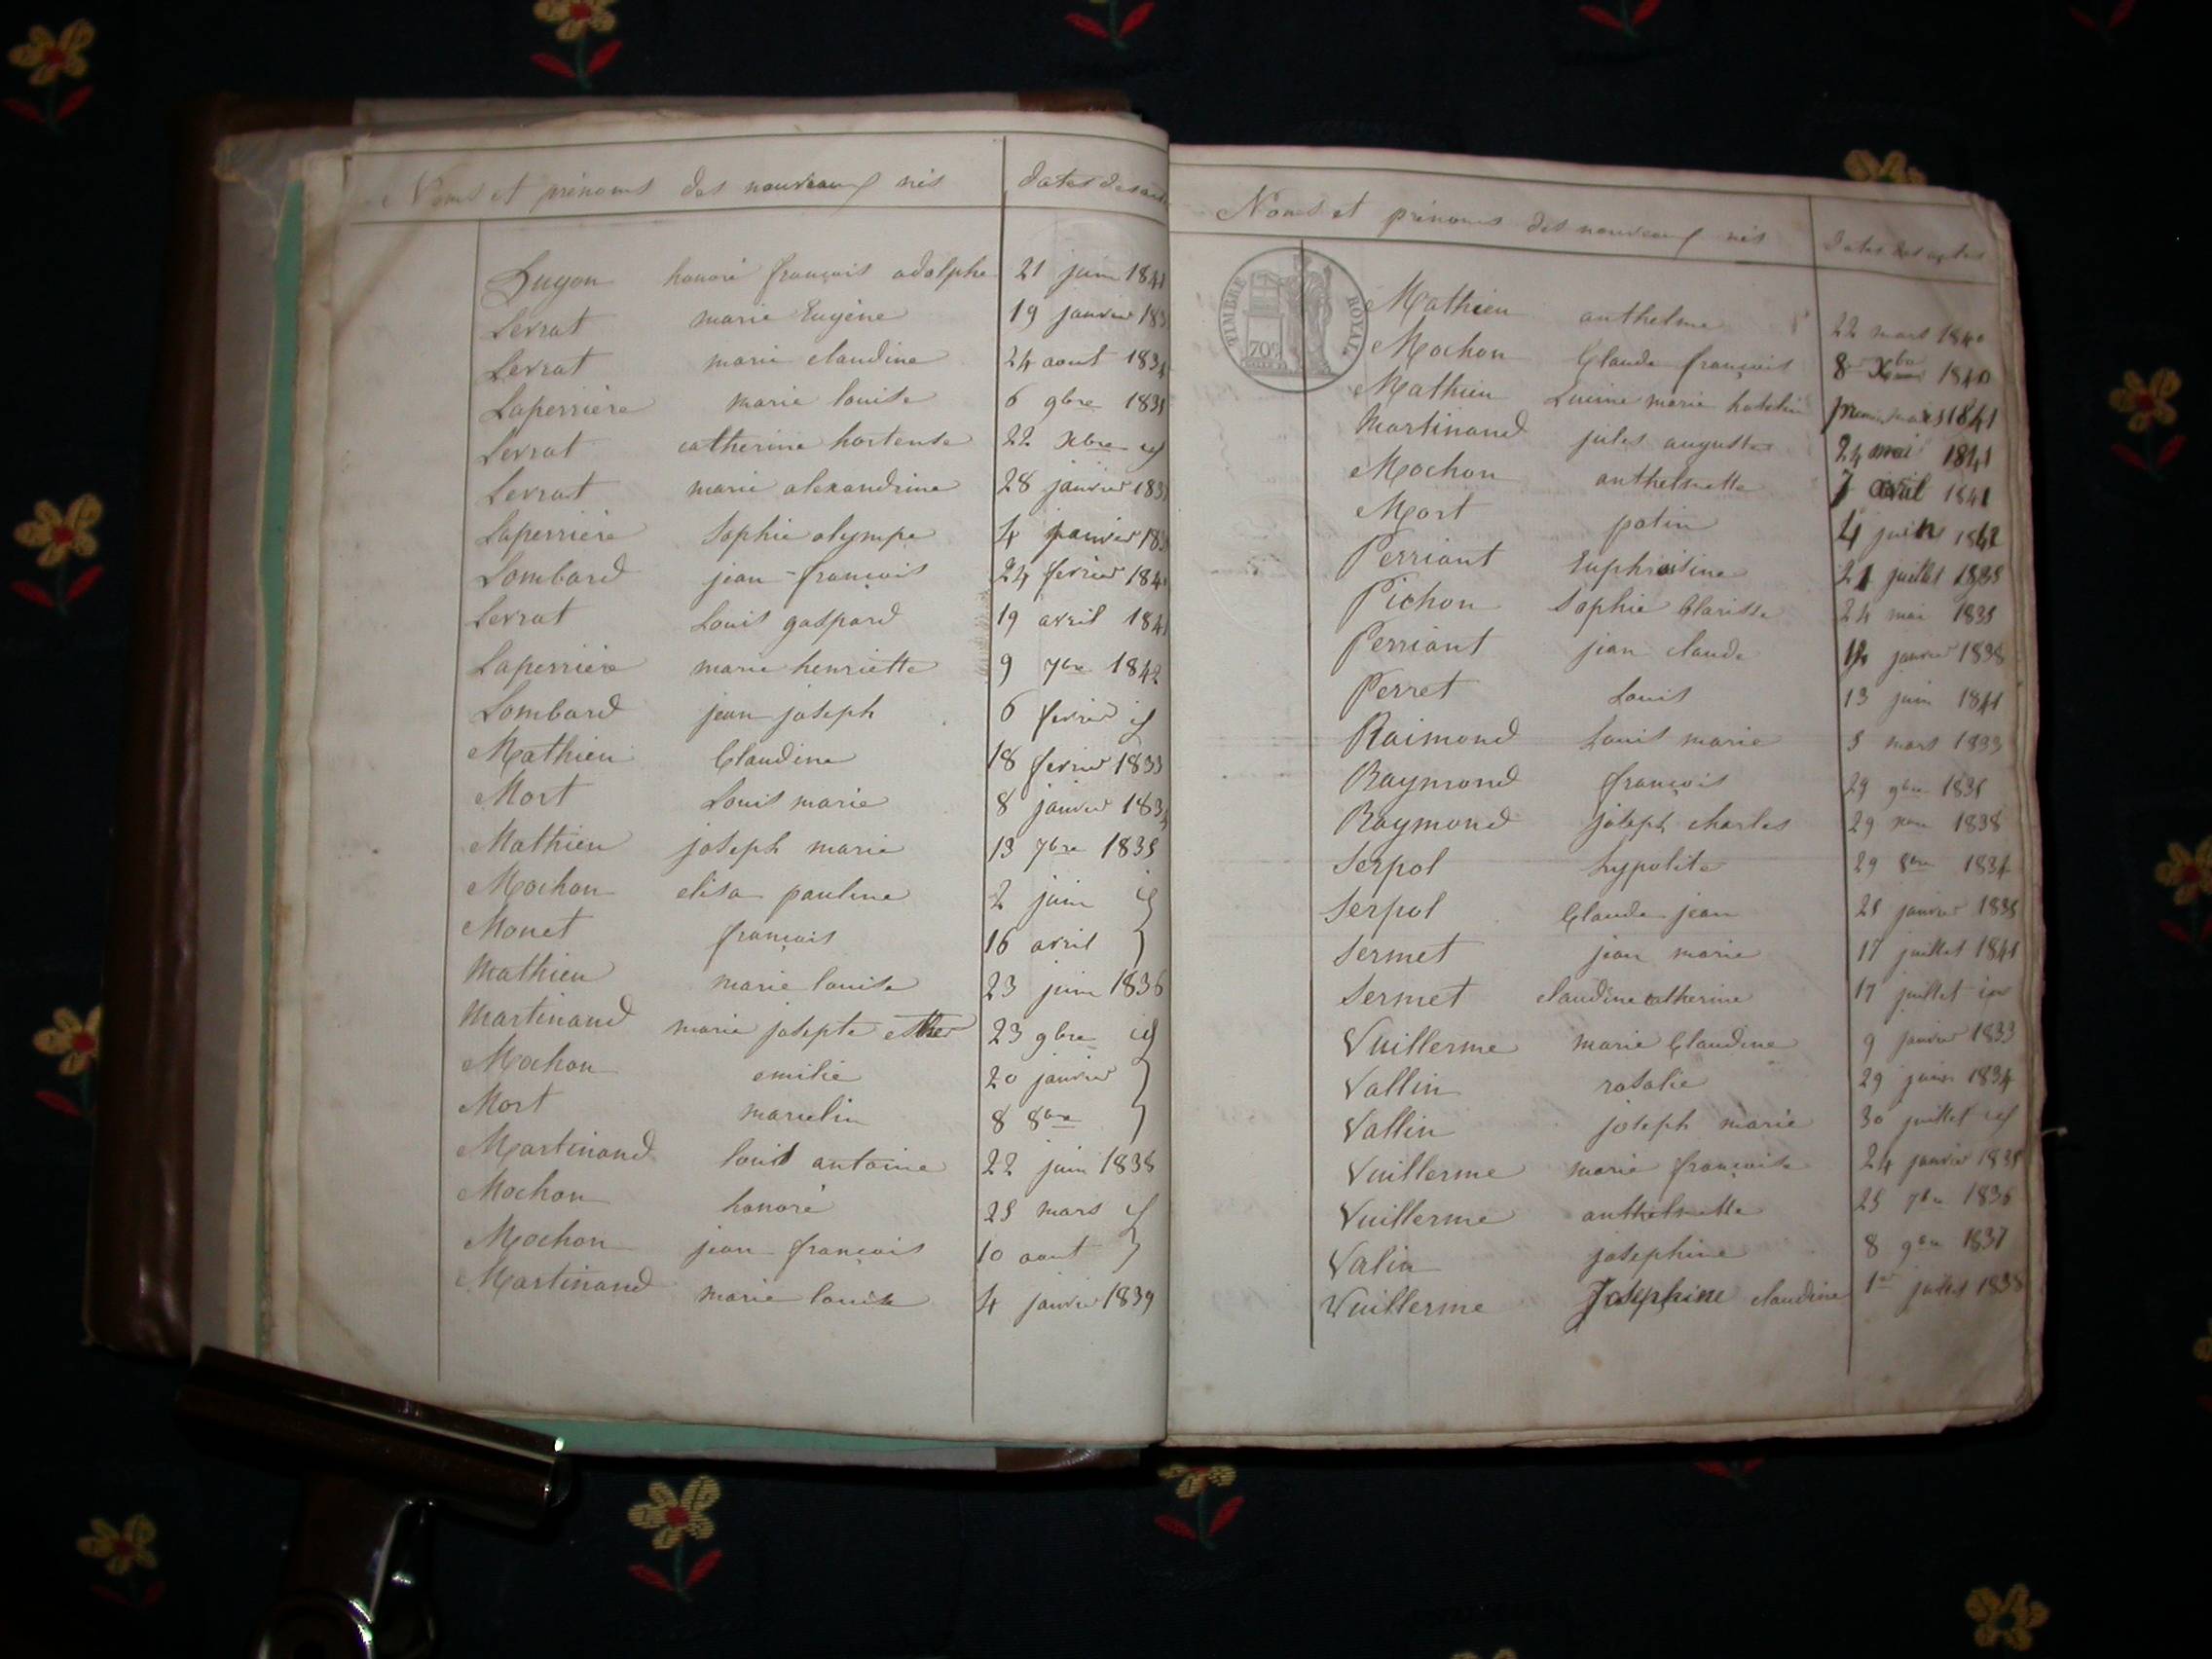 Noms et prénoms des nouveaux nés dates des
Lugon honoré françois adolphe 21 juin
Levrat marie Eugène 19 janvier
Levrat marie claudine 24 aout
Laperriere marie louise 6 9bre 1835
Levrat catherine hortense 22 Xbre id
Levrat marie alexandrine 28 janvier
Laperriere Sophie olympe 4 janvier
Lombard jean-françois 24 fevrier
Levrat Louis gaspard 19 avril
Laperriere marie henriette 9 7bre 1842
Lombard jean joseph 6 fevrier id
Mathieu Claudine 18 fevrier 1833
Mort Louis marie 8 janvier
Mathieu joseph marie 13 7bre 1835
Mochon elisa pauline 2 juin id
Monet françois 16 avril }
Mathieu marie louise 23 juin 1836
Martinand marie josepte esther 23 9bre id
Mochon emilie 20 janvier }
Mort marcelin 8 8bre }
Martinand louis antoine 22 juin 1838
Mochon honoré 25 mars id
Mochon jean françois 10 aout }
Martinand marie louise 4 janvier 1839
Noms et prénoms des nouveaux nés dates des actes
TIMBRE ROYAL
70c
Mathieu anthelme 22 mars 1840
Mochon Claude françois 8 Xbre 1840
Mathieu marie 1841
Martinand jules auguste 24 mai 1841
Mochon anthelmette 7 avril 1841
Mort patin 4 juin 1842
Perriant Euphrosine 21 juillet 1835
Pichon Sophie Clarisse 24 mai 1835
Perriant jean claude janvier 1838
Perret Louis 13 juin 1841
Raimond Louis marie 5 mars 1833
Raymond françois 29 9bre 1835
Raymond joseph charles 29 1838
Serpol hypolite 29 8bre 1834
Serpol Claude jean 25 janvier 1835
Sermet jean marie 17 juillet 1841
Sermet claudine catherine 17 juillet
Vuillerme marie Claudine 9 janvier 1833
Vallin rosalie 29 1834
Vallin joseph marie 30 juillet id
Vuillerme marie françoise 24 janvier 1835
Vuillerme anthelmette 25 7bre 1836
Valin josephine 8 9bre 1837
Vuillerme Josephine claudine 1er juillet 1838